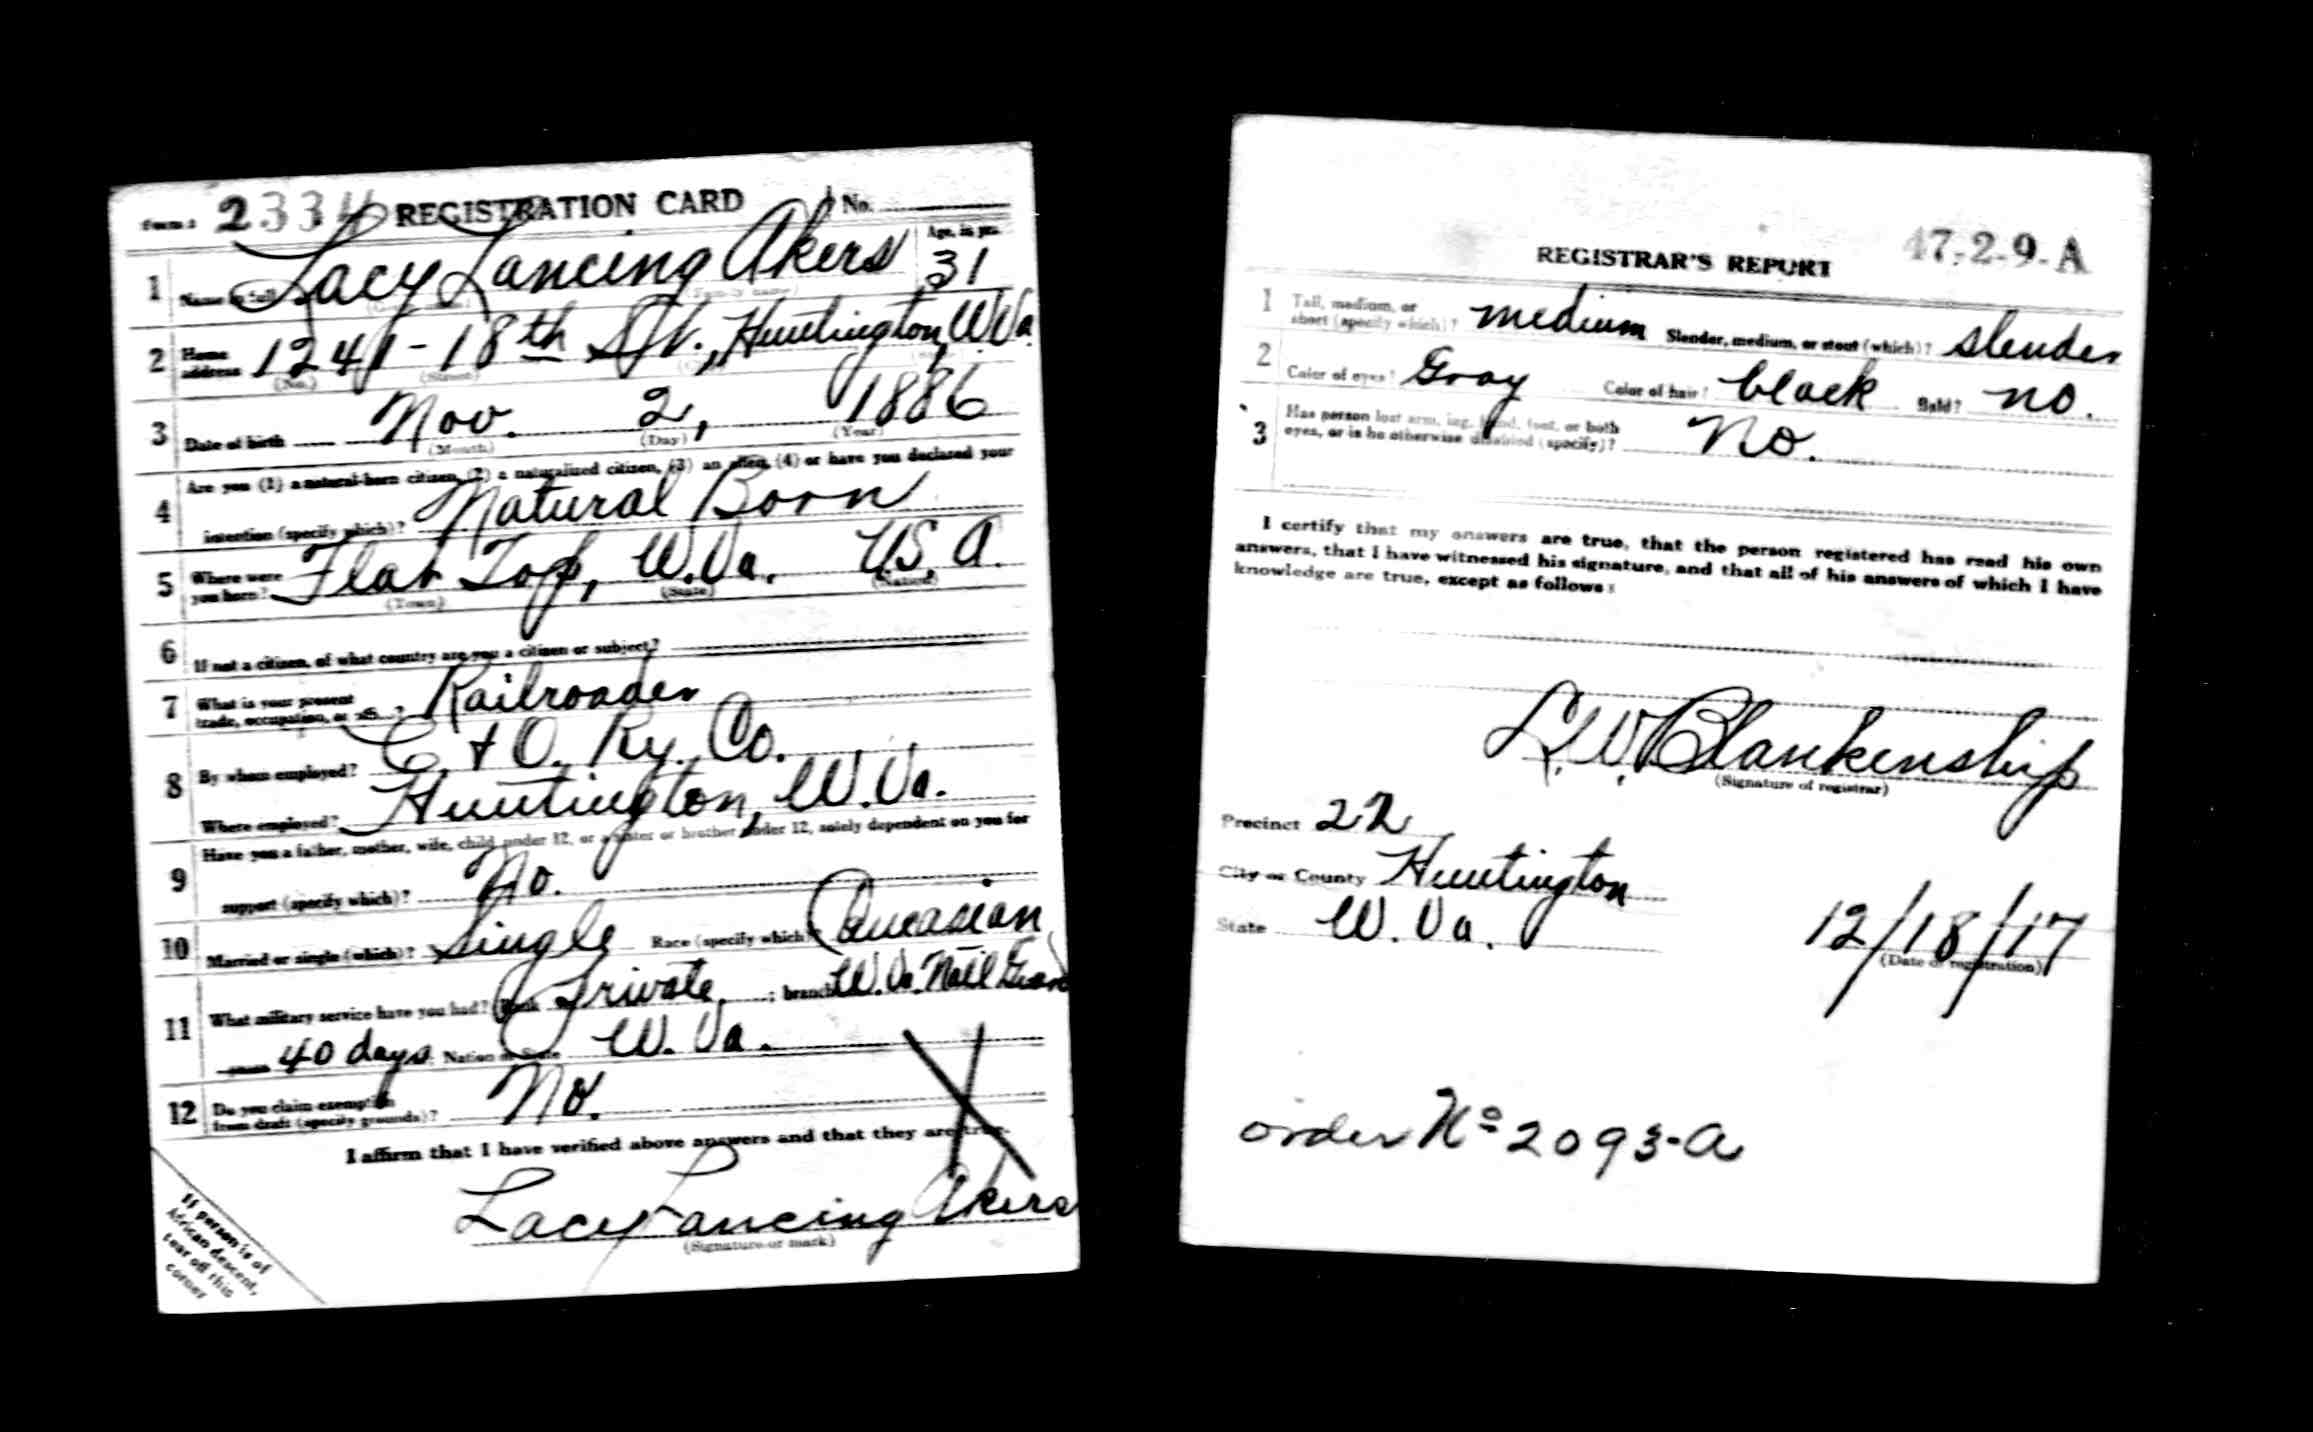 Form 1 2334 REGISTRATION CARD No.
Age, in yrs.
1 Name in full Lacy Lancing Akers 31
(Family name)
2 Home address 1241 - 18th St., Huntington, W.Va.
(No.) (Street)
3 Date of birth Nov. 2, 1886
(Month) (Day) (Year)
4 Are you (1) a natural-born citizen, (2) a naturalized citizen, (3) an alien, (4) or have you declared your
intention (specify which)? Natural Born
5 Where were you born? Flat Top, W.Va. U.S.A.
(Town) (State) (Nation)
6 If not a citizen, of what country are you a citizen or subject?
7 What is your present trade, occupation, or office? Railroader
8 By whom employed? C. & O. Ry. Co.
Where employed? Huntington, W.Va.
9 Have you a father, mother, wife, child under 12, or a sister or brother under 12, solely dependent on you for
support (specify which)? No.
10 Married or single (which)? Single Race (specify which)? Caucasian
11 What military service have you had? Rank Private ; branch W.Va. Nat'l Guard
years 40 days Nation or State W. Va.
12 Do you claim exemption from draft (specify grounds)? No.
I affirm that I have verified above answers and that they are true.
Lacy Lancing Akers
(Signature or mark)
If person is of
African descent,
tear off this
corner
47-2-9-A
REGISTRAR'S REPORT
1 Tall, medium, or short (specify which)? medium Slender, medium, or stout (which)? slender
2 Color of eyes? Gray Color of hair? black Bald? no.
3 Has person lost arm, leg, hand, foot, or both
eyes, or is he otherwise disabled (specify)? No.
I certify that my answers are true, that the person registered has read his own
answers, that I have witnessed his signature, and that all of his answers of which I have
knowledge are true, except as follows:
L. W. Blankenship
(Signature of registrar)
Precinct 22
City or County Huntington
State W. Va.
12/18/17
(Date of registration)
order No 2093-A